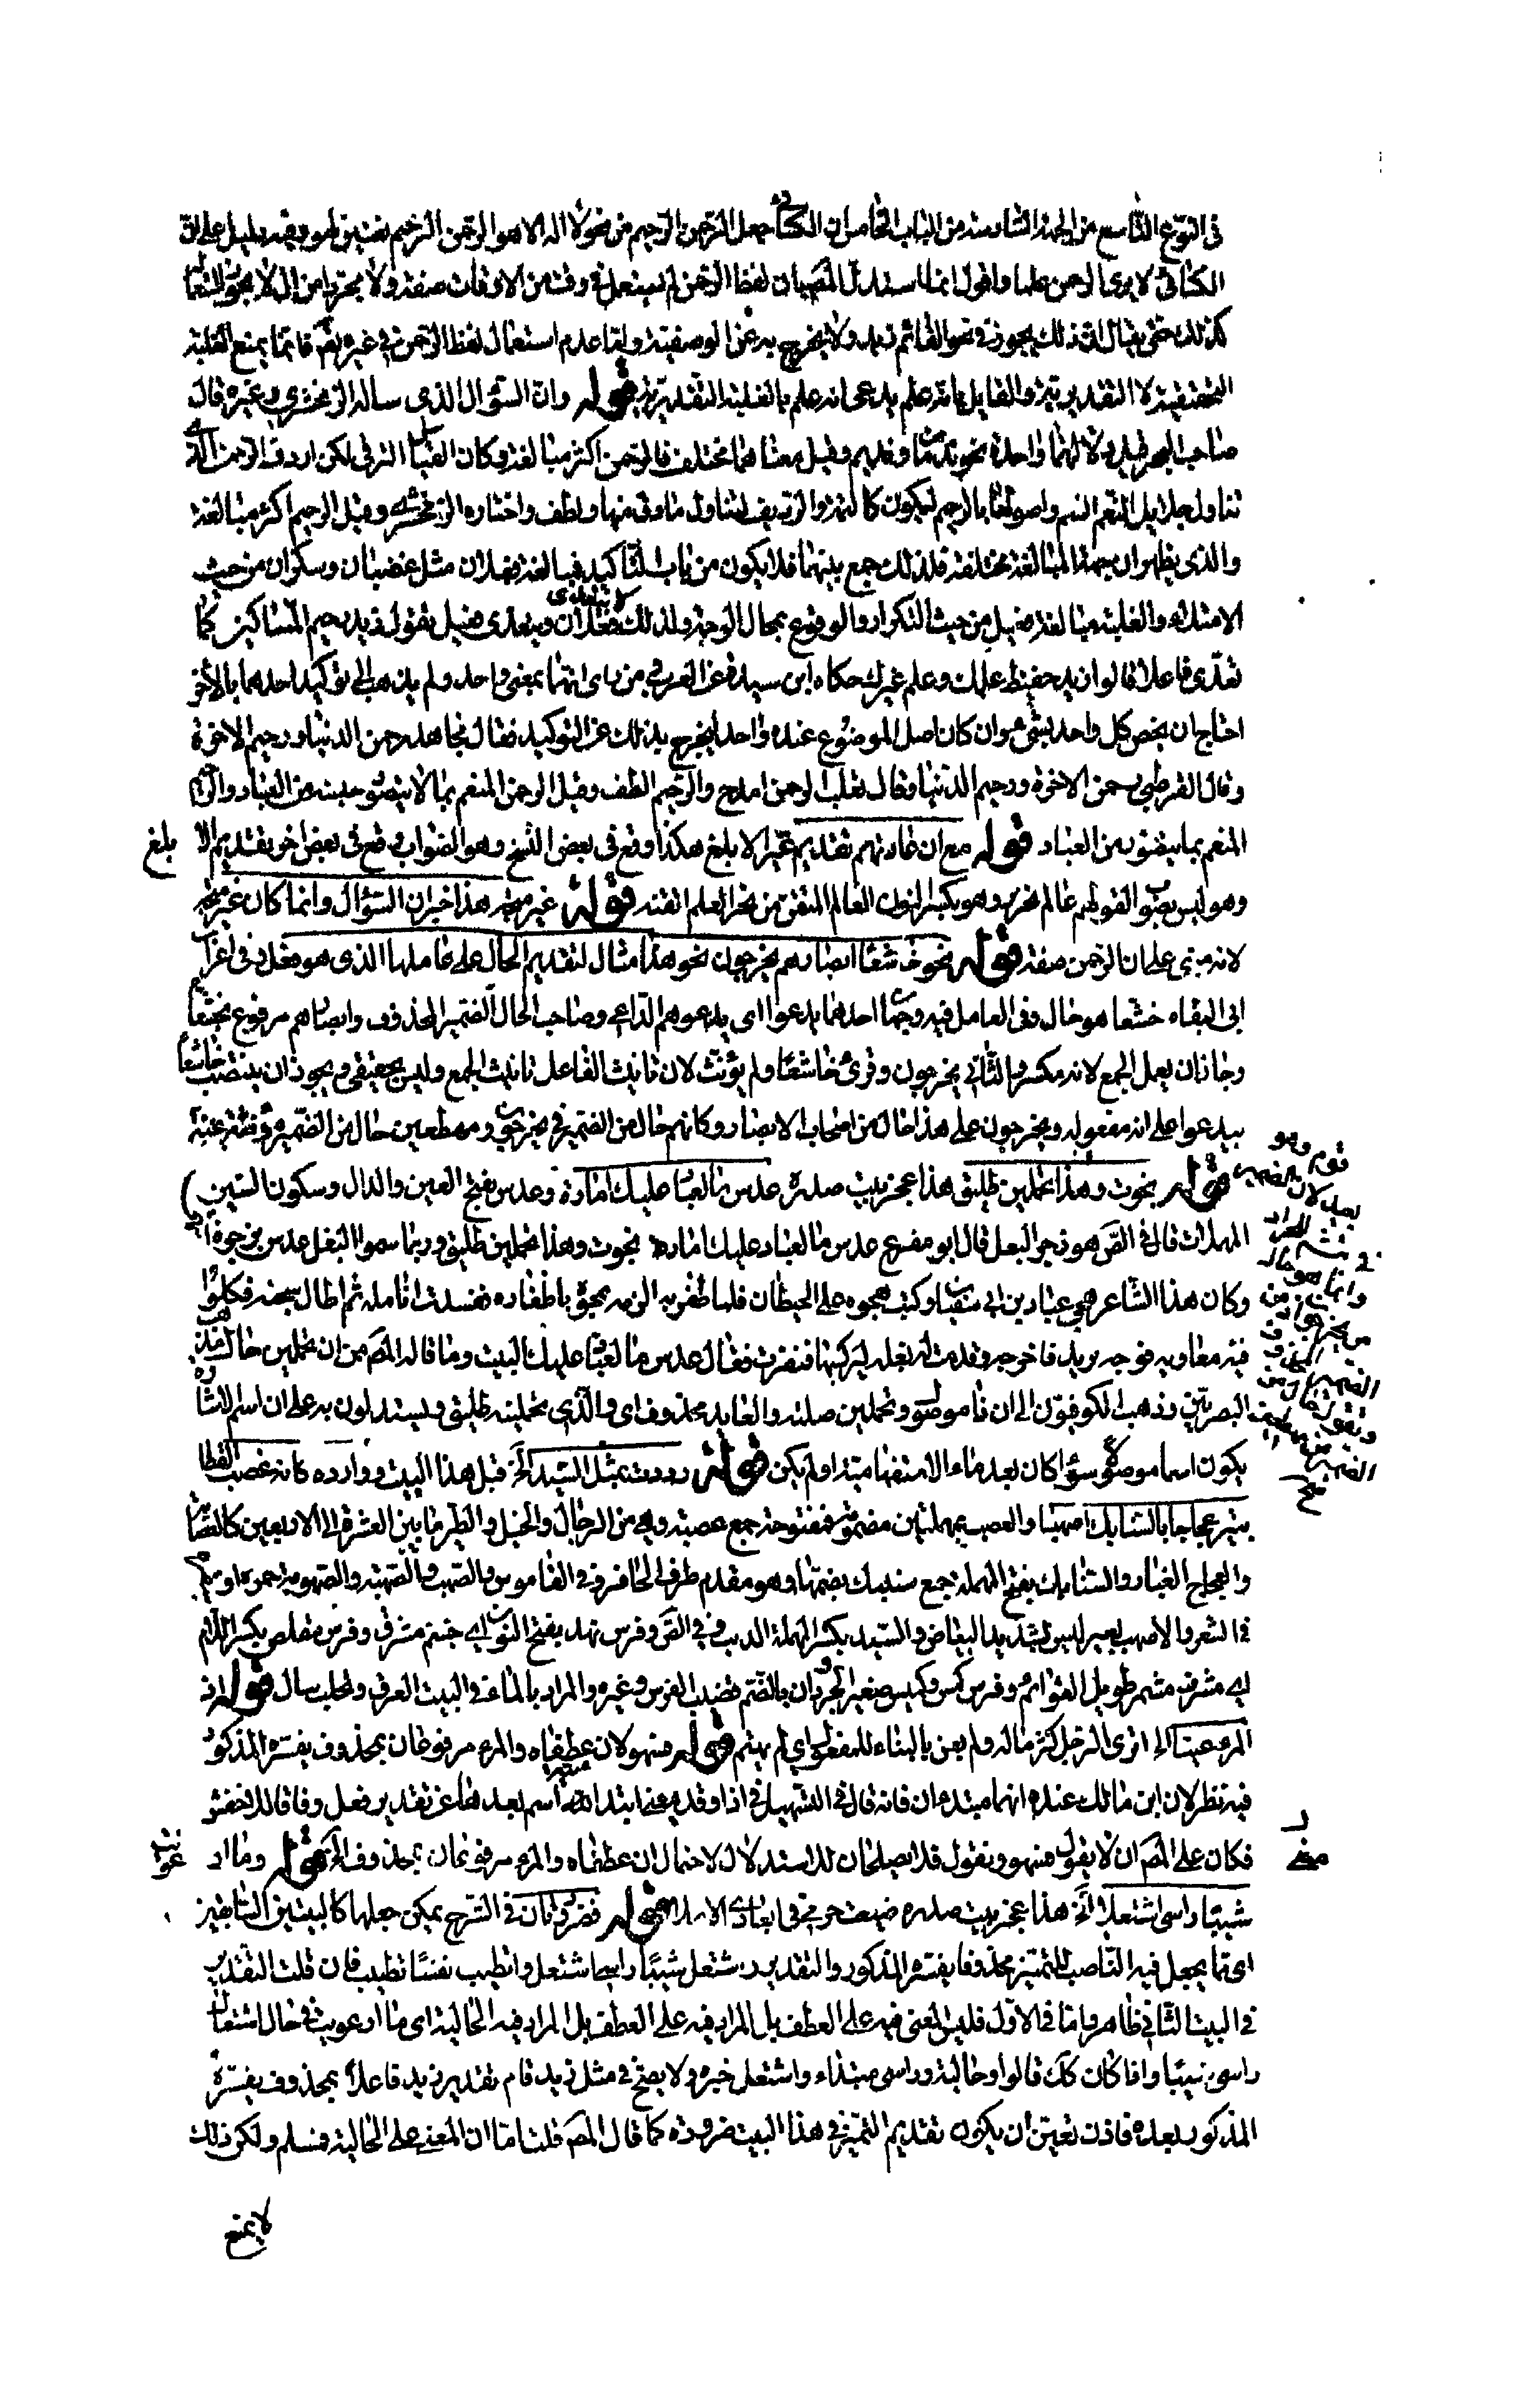 في النوع التاسع من الجهة السادسة من الباب الخامس ان الكسائي جعل الرحمن الرحيم من نحو لا اله الا هو الرحمن الرحيم نعتين لهو وفيه دليل على ان
الكسائي لا يرى الرحمن علما واقول انما استدلال المص بان لفظ الرحمن لم يستعمل في وقت من الاوقات صفة ولا مجردا من ال
كذلك حتى يقال ان ذلك يجوز في نحو القائم زيد ولا يخرج به عن الوصفية واما عدم استعمال لفظ الرحمن في غيره تع فانما يمنع الغلبة
التحقيقية لا التقديرية والقايل بانه علم يدعي انه علم بالغلبة التقديرية قوله وان السؤال الذي ساله الزمخشري وغيره قال
صاحب البحر قيل دلالتهما واحدة نحو ندمان ونديم وقيل معناهما مختلف فالرحمن اكثر مبالغة وكان القياس الترقي لكن اردف الرحمن الذي
تناول جلايل النعم واصولها بالرحيم ليكون كالتتمة والرديف ليتناول ما دق منها ولطف واختاره الزمخشري وقيل الرحيم اكثر مبالغة
والذي يظهر ان جهة المبالغة مختلفة فلذلك جمع بينهما فلا يكون من باب التأكيد فمبالغة فعلان مثل غضبان وسكران من حيث
الامتلاء والغلبة ومبالغة فعيل من حيث التكرار والوقوع بمحال الرحمة ولذلك لا يتعدى فعلان ويتعدى فعيل تقول زيد رحيم المساكين كما
تعدى فاعلا قالوا زيد حفيظ علمك وعلم غيرك حكاه ابن سيده عن العرب ومن راى انهما بمعنى واحد ولم يذهب الى توكيد احدهما بالاخر
احتاج ان يخص كل واحد بشئ وان كان اصل الموضوع عنده واحدا ليخرج بذلك عن التوكيد فقال مجاهد رحمن الدنيا ورحيم الاخرة
وقال القرطبي رحمن الاخرة ورحيم الدنيا وقال ثعلب الرحمن امدح والرحيم الطف وقيل الرحمن المنعم بما لا يتصور جنسه من العباد والرحيم
المنعم بما يتصور من العباد قوله مع ان عادتهم تقديم غير الابلغ هكذا وقع في بعض النسخ وهو الصواب ووقع في بعض اخر بتقديم الا بلغ
وهو ليس بصواب لقولهم عالم نحرير وهو بكسر النون العالم المتقن من نحر العلم اتقنه قوله غير متجه هذا خبر ان السؤال وانما كان غير متجه
لانه مبني على ان الرحمن صفة قوله نحو خشعا ابصارهم يخرجون نحو هذا مثال لتقديم الحال على عاملها الذي هو فعل وفي اعراب
ابي البقاء خشعا هو حال وفي العامل فيه وجهان احدهما يدعوا اي يدعوهم الداعي وصاحب الحال الضمير المحذوف وابصارهم مرفوع بخشعا
وجاز ان يعمل الجمع لانه مكسر والثاني يخرجون وقرئ خاشعا ولم يؤنث لان تانيث الفاعل تانيث الجمع وليس بحقيقي ويجوز ان ينتصب خاشعا
بيدعوا على انه مفعوله ويخرجون على هذا حال من اصحاب الابصار وكانهم حال من الضمير في يخرجون ومهطعين حال من الضمير في منتشر عند
قوله نجوت وهذا تحملين طليق هذا عجز بيت صدره عدس ما لعباد عليك امارة وعدس بفتح العين والدال وسكون السين
المهملات قال في الص هو زجر البغل قال ابو مفرغ عدس ما لعباد عليك امارة نجوت وهذا تحملين طليق وربما سموا البغل عدس بزجره
وكان هذا الشاعر هجى عباد بن ابي سفيان وكتب هجوه على الحيطان فلما ظفر به الزمه بمحوه باظفاره ففسدت انامله ثم اطال سجنه فكلموا
فيه معاويه فوجه بريدا فاخرجه وقدمت له بغلة ليركبها فنفرت فقال عدس ما لعباد عليك البيت وما قاله المص من ان تحملين حال هو مذهب
البصريين وذهب الكوفيون الى ان ذا موصول وتحملين صلته والعايد محذوف اي والذي تحملينه طليق ويستدلون به على ان اسم الاشارة
يكون اسما موصولا سوا كان بعد ما الاستفهاميه اولم يكن قوله رددت بمثل السيد الخ قبل هذا البيت وواردة كانها عصب القطا
يثير عجاجا بالسنابك اصهبا والعصب بمهملتين مضمومة فمفتوحة جمع عصبة وهي من الرجال والخيل والطير ما بين العشرة الى الاربعين كالعصابة
والعجاج الغبار والسنابك بفتح المهملة جمع سنبك بضمها وهو مقدم طرف الحافر وفي القاموس والصهب والصهبة والصهوبة حمرة او شقرة
في الشعر والاصهب بعير ليس بشديد البياض والسيد بكسر المهملة الذيب وفي الص وفرس نهد بفتح النون اي جسم مشرف وفرس مقلص بكسر اللام
اي مشرف مشمر طويل القوائم وفرس كمش وكميش صغير الجردان بالضم قضيب الفرس وغيره والمراد بالماء في البيت العرق وتحلب سال قوله اذا
المرء عينا الخ اثرى الرجل كثر ماله ولم يعن بالبناء للمفعول اي لم يهتم قوله فسهو لان عطفاه والمرء مرفوعان بمحذوف يفسره المذكور
فيه نظر لان ابن مالك عنده انهما مبتدءان فانه قال في التسهيل في اذا وقد يغني ابتداء اسم بعدها عن تقدير فعل وفاقا للاخفش
فكان على المص ان لا يقول فسهو ويقول قد يصلحان للاستدلال لاحتمال ان عطفاه والمرء مرفوعان بمحذوف الخ قوله وما ارعويت
شيبا راسي اشتعلا الخ هذا عجز بيت صدره ضيعت حزمي في ابعادي الاملا قوله فضرورتان في الشرح يمكن جعلهما كالبيتين السابقين
اي مما يجعل فيه الناصب للتمييز محذوفا يفسره المذكور والتقدير اشتعل شيبا راسي اشتعل واتطيب نفسا تطيب فان قلت التقدير
في البيت الثاني ظاهر واما في الاول فليس المعنى فيه على العطف بل المراد فيه الحالية اي ما ارعويت في حال اشتعال
راسي شيبا واذا كان كك فالواو حالية وراسي مبتداء واشتعل خبره ولا يصح في مثل زيد قام تقدير زيد فاعلا بمحذوف يفسره
المذكور بعده فاذن تعين ان يكون تقديم التمييز في هذا البيت ضرورة كما قال المص قلت اما ان المعنى على الحالية فمسلم ولكن ذلك
لا يمنع